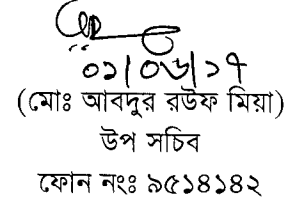 ০১/০৬/১৭
(মোঃ আবদুর রউফ মিয়া)
উপ সচিব
ফোন নংঃ ৯৫১৪১৪২